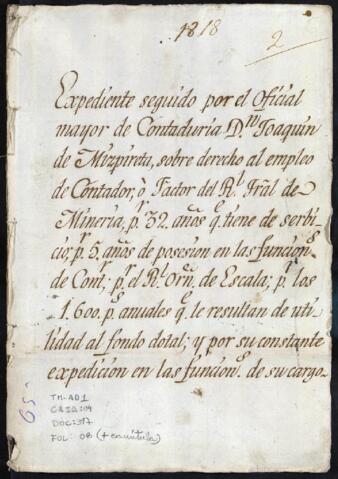 1818
2
Expediente seguido por el Oficial
mayor de Contaduria D.ⁿ Joaquin
de Mizpireta, sobre derecho al empleo
de Contador, ò Factor del R.ˡ Trãl de
Mineria, p.ʳ 32. años q.ᵉ tiene de serbi
cio; p.ʳ 5. años de posesion en las funcion.ˢ
de Cont.ʳ; p.ʳ el R.ˡ Orn̄. de Escala; p.ʳ los
1.600. p.ˢ anuales q.ᵉ le resultan de uti
lidad al fondo dotal; y por su constante
expedicion en las funcion.ˢ de su cargo.
65
TM-AD1
CAJA:09
DOC:377
FOL: 08 (+ carátula)